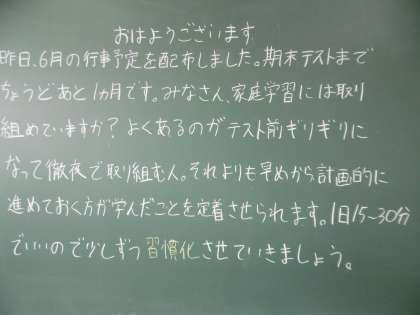 おはようございます
昨日、6月の行事予定を配布しました。期末テストまで
ちょうどあと1ヵ月です。みなさん、家庭学習には取り
組めていますか？よくあるのがテスト前ギリギリに
なって徹夜で取り組む人。それよりも早めから計画的に
進めておく方が学んだことを定着させられます。1日15～30分
でいいので少しずつ習慣化させていきましょう。